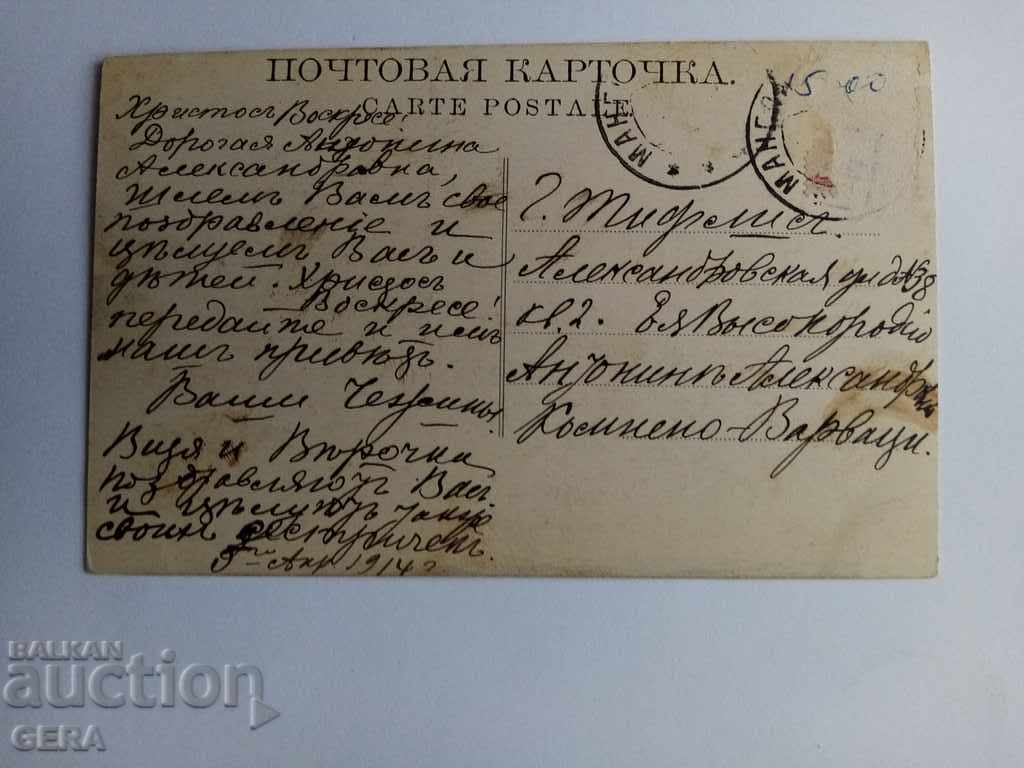 ПОЧТОВАЯ КАРТОЧКА.
CARTE POSTALE
МАНГ
МАНГ
15 00
Христосъ Воскресе
Дорогая Антонина
Александровна,
Шлемъ Вамъ свое
поздравленіе и
цѣлуемъ Васъ и
дѣтей. Христосъ
Воскресе!
передайте и имъ
нашъ привѣтъ.
Ваши
Витя и Вѣрочка
поздравляютъ Васъ
и цѣлуютъ
своихъ
5го Апр 1914 г
Г. Тифлисъ.
Александровская ул д №38
кв. 2. Ея Высокородію
Антонинѣ
Комнено-Варваци.
BALKAN
auction
GERA